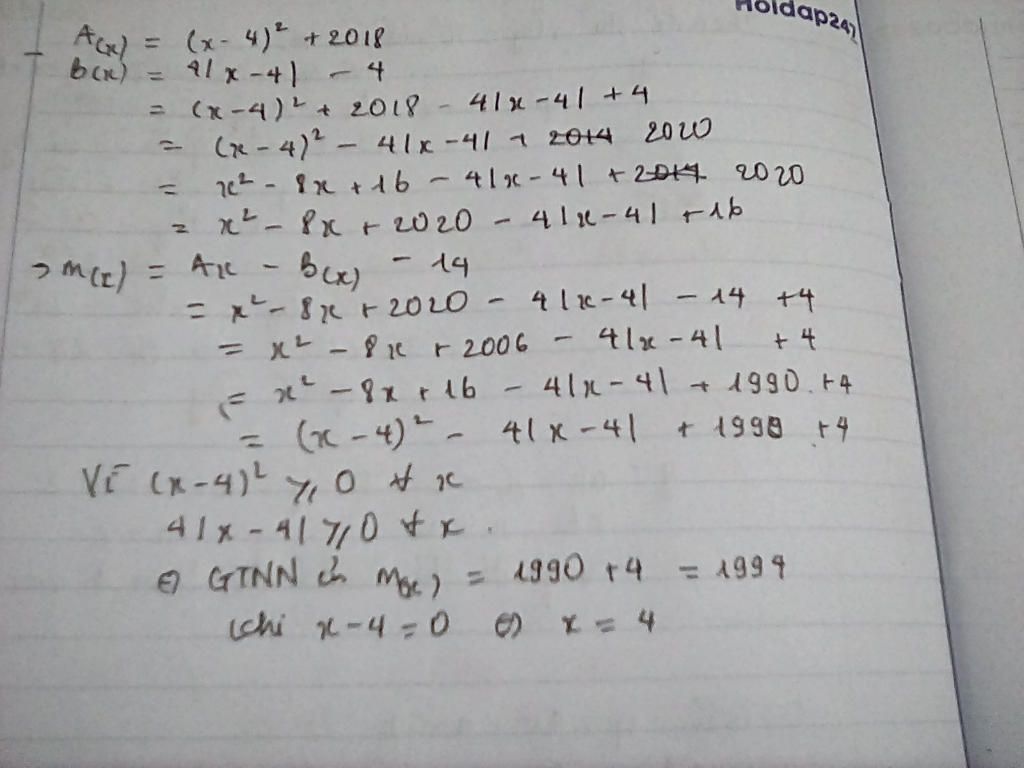 Hoidap247
- A(x) = (x-4)² + 2018
B(x) = 4|x-4| - 4
= (x-4)² + 2018 - 4|x-4| + 4
= (x-4)² - 4|x-4| + 2014 2020
= x² - 8x + 16 - 4|x-4| + 2014 2020
= x² - 8x + 2020 - 4|x-4| + 16
→ M(x) = Ax - B(x) - 14
= x² - 8x + 2020 - 4|x-4| - 14 + 4
= x² - 8x + 2006 - 4|x-4| + 4
= x² - 8x + 16 - 4|x-4| + 1990 + 4
= (x-4)² - 4|x-4| + 1990 + 4
Vì (x-4)² ≥ 0 ∀ x
4|x-4| ≥ 0 ∀ x.
⇔ GTNN M(x) = 1990 + 4 = 1994
khi x-4 = 0 ⇔ x = 4